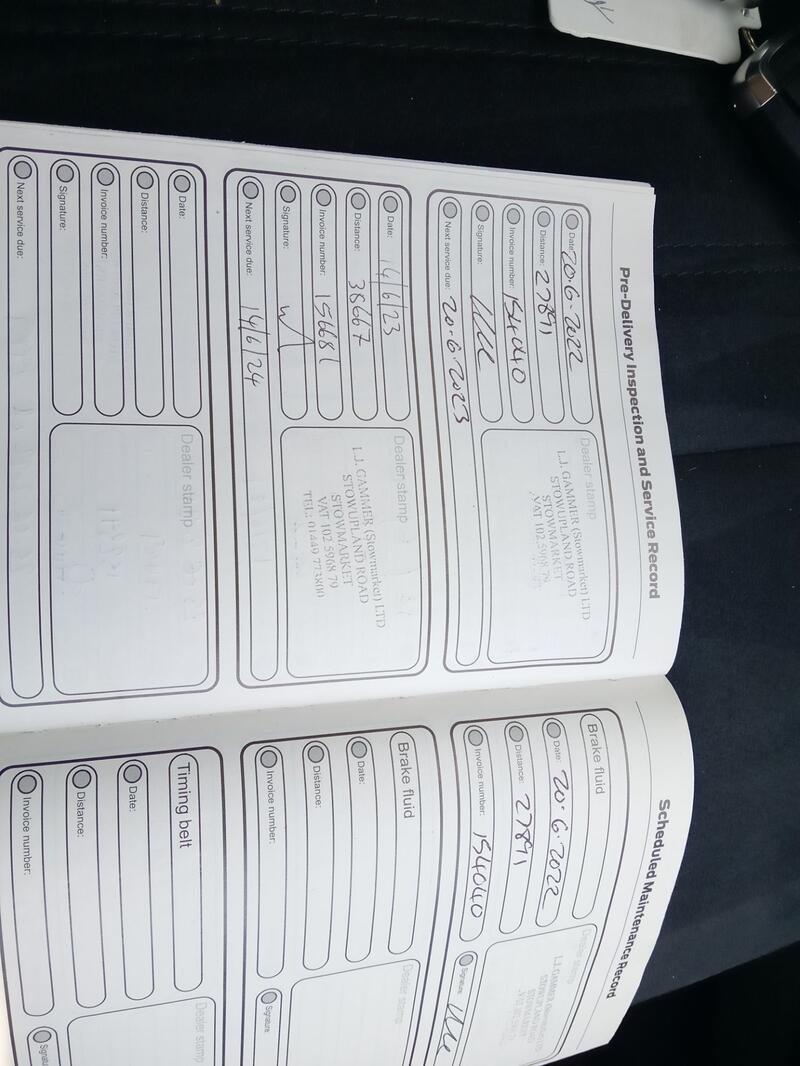 Pre-Delivery Inspection and Service Record
Date: 20.6.2022
Distance: 27891
Invoice number: 154040
Signature:
Next service due: 20.6.2023
Dealer stamp
L.J. GAMMER (Stowmarket) LTD
STOWUPLAND ROAD
STOWMARKET
VAT 102 5968 79
Date: 14/6/23
Distance: 38667
Invoice number: 156681
Signature:
Next service due: 14/6/24
Dealer stamp
L.J. GAMMER (Stowmarket) LTD
STOWUPLAND ROAD
STOWMARKET
VAT 102 5968 79
TEL: 01449 773800
Date:
Distance:
Invoice number:
Signature:
Next service due:
Dealer stamp
Scheduled Maintenance Record
Brake fluid
Date: 20.6.2022
Distance: 27891
Invoice number: 154040
Signature:
Dealer stamp
Brake fluid
Date:
Distance:
Invoice number:
Signature
Dealer stamp
Timing belt
Date:
Distance:
Invoice number:
Dealer stamp